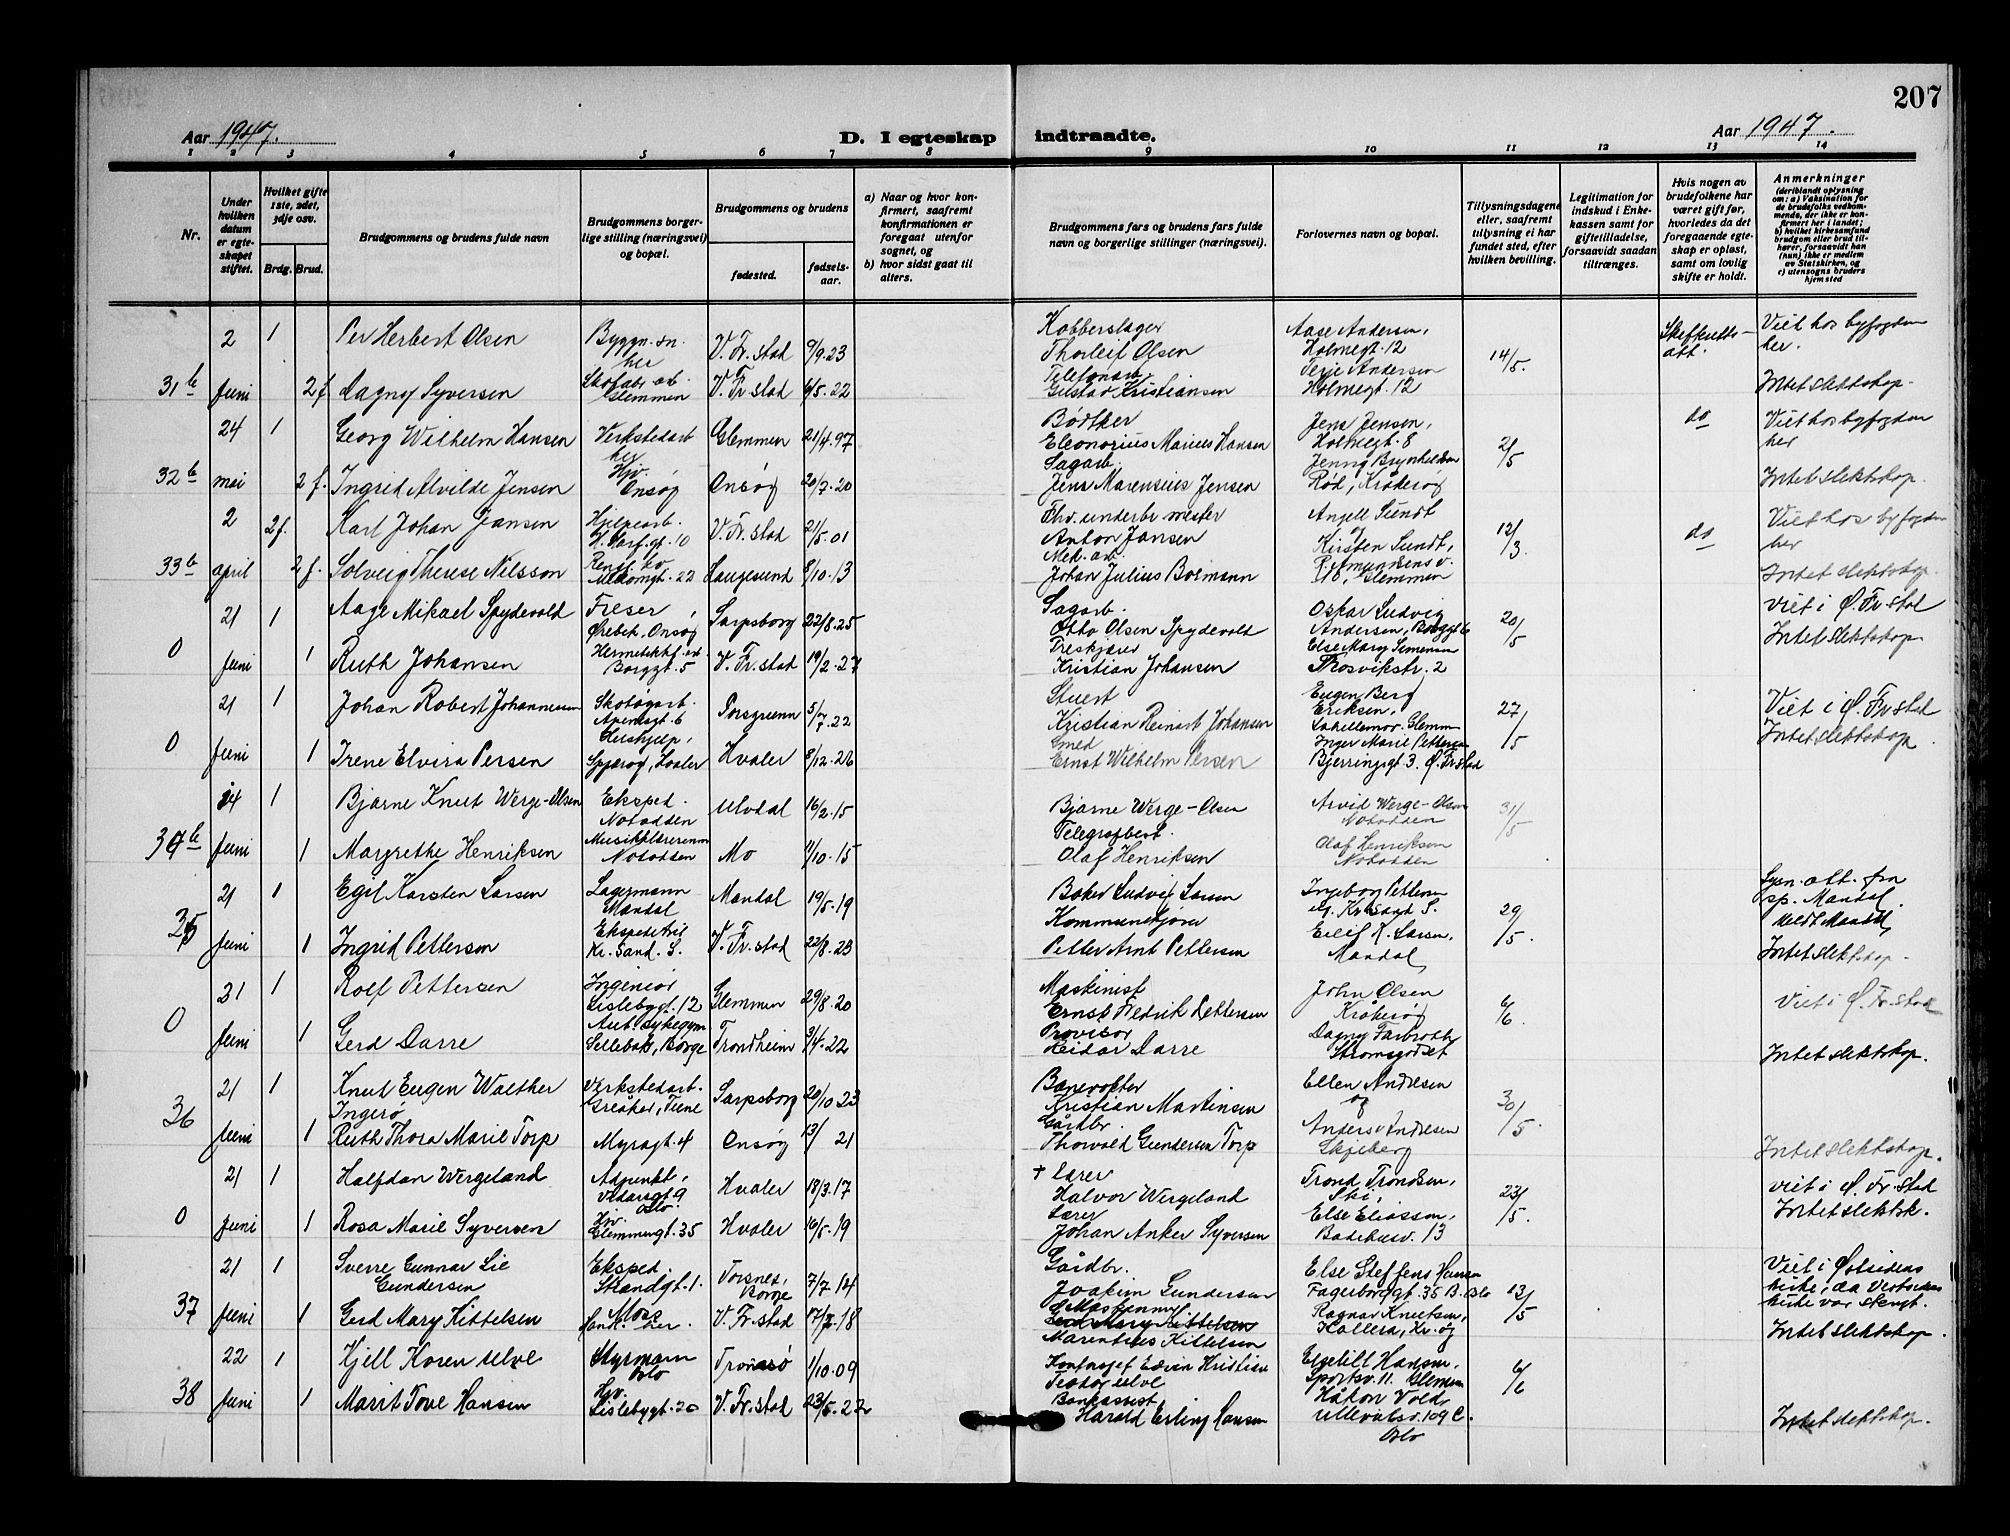 207
Aar 1947.
D. I egteskap indtraadte.
Aar 1947.
1 2 3 4 5 6 7 8 9 10 11 12 13 14
Nr.
Under hvilken datum er egteskapet stiftet.
Hvilket gifte 1ste, 2det, 3dje osv.
Brdg. Brud.
Brudgommens og brudens fulde navn
Brudgommens borgerlige stilling (næringsvei) og bopæl.
Brudgommens og brudens
fødested.
fødselsaar.
a) Naar og hvor konfirmert, saafremt konfirmationen er foregaat utenfor sognet, og
b) hvor sidst gaat til alters.
Brudgommens fars og brudens fars fulde navn og borgerlige stillinger (næringsvei).
Forlovernes navn og bopæl.
Tillysningsdagene eller, saafremt tillysning ei har fundet sted, efter hvilken bevilling.
Legitimation for indskud i Enkekassen samt for giftetilladelse, forsaavidt saadan tiltrænges.
Hvis nogen av brudefolkene har været gift før, hvorledes da det foregaaende egteskap er opløst, samt om lovlig skifte er holdt.
Anmerkninger (deriblandt oplysning om: a) Vaksination for de brudefolks vedkommende, der ikke er konfirmert her i landet; b) hvilket kirkesamfund brudgom eller brud tilhører, forsaavidt han (hun) ikke er medlem av Statskirken, og c) utensogns bruders hjemsted
2 1 Per Herbert Olsen Byggn. her V. Fr.stad 9/9.23 Kobberslager Thorleif Olsen Aase Andersen, Holmegt. 12 14/5. Viet hos byfogden her.
31b Juni 2f. Dagny Syversen Skofabr. arb. Glemmen V. Fr.stad 6/5.22 Telefonarb. Gustav Kristiansen Terje Andersen Holmegt. 12 Intet slektskap.
24 1 Georg Wilhelm Hansen Verkstedarb. her Glemmen 21/4.97 Bødtker Eleonorius Marius Hansen Jens Jensen, Holmegt. 8 2/5 do Viet hos byfogden her
32b mai 2f. Ingrid Alvilde Jensen Hjv. Onsøy Onsøy 20/7.20 Sagarb. Jens Marensius Jensen Jenny Brynhildsen Rød, Kråkerøy Intet slektskap.
2 2f. Karl Johan Jansen Hjelpearb. gt. 10 V. Fr.stad 21/5.01 Fhv. underbr.mester Anton Jansen Angell Sundt og 12/3. do Viet hos byfogden her
33b april 2f. Solveig Therese Nilsson gt. 22 Haugesund 8/10.13 Mek. arb. Johan Julius Bormann Kirsten Sundt, Glemmen Intet slektskap.
21 1 Aage Mikael Spydevold Freser Ørebek, Onsøy Sarpsborg 22/8.25 Sagarb. Otto Olsen Spydevold Oskar Ludvig Andersen, Borggt 6 20/5 Viet i Ø. Fr.stad
0 Juni 1 Ruth Johansen Hermetikkf. arb. Borggt. 5 V. Fr.stad 19/2.27 Kristian Johansen Else Mary Simensen Trosvikstr. 2 Intet slektskap.
21 1 Johan Robert Johannessen Skotøyarb. gt. 6 Porsgrunn 5/7.22 Stuert Kristian Reinart Johansen Eugen Berg Eriksen, Glemm. 27/5 Viet i Ø. Fr.stad
0 Juni 1 Irene Elvira Persen Hushjelp, Spjærøy, Hvaler 8/12.26 Smed Ernst Wilhelm Persen Inger Marie Pettersen Bjerringsgt. 3. Ø. Fr.stad Intet slektskap
14 1 Bjarne Knut Werge-Olsen Eksped. Notodden Ulvdal 16/2.15 Bjarne Werge-Olsen Arvid Werge-Olsen Notodden 31/5
34b Juni 1 Margrethe Henriksen Musikklærerinne Notodden Mo 11/10.15 Telegrafbest. Olaf Henriksen Olaf Henriksen Notodden
21 1 Egil Karsten Larsen Lagermann Mandal Mandal 19/5.19 Baker Ludvig Larsen Ingeborg Pettersen Kr.sand S. 29/5. Lysn. att. fra sp. Mandal.
35 Juni 1 Ingrid Pettersen Kr. Sand. S. V. Fr.stad 22/8.23 Kommunekjører Petter Arnt Pettersen Eilif K. Larsen, Mandal Intet slektskap.
21 1 Rolf Pettersen Ingeniør Lislebygt. 12 Glemmen 29/8.20 Maskinist Ernst Fredrik Pettersen John Olsen Kråkerøy 6/6. Viet i Ø. Fr.stad
0 Juni 1 Gerd Darre Aut. sykegym. Sellebakk, Borge Trondheim 3/4.22 Provisor Reidar Darre Dagny Strømsgodset Intet slektskap.
21 1 Knut Eugen Walther Ingerø Verkstedarb. Greåker, Tune Sarpsborg 20/10 23 Banevokter Kristian Martinsen Ellen Andresen og 30/5.
36 Juni 1 Ruth Thora Marie Torp Myragt. 4 Onsøy 13/ 21 Gårdbr. Thorvald Gundersen Torp Anders Andresen Skjeberg Intet slektskap.
21 1 Halfdan Wergeland Adjunkt, gt 9 Oslo. Hvaler 18/3.17 † Lærer Halvor Wergeland Trond Trondsen, Ski, 23/5. Viet i Ø. Fr.stad
0 Juni 1 Rosa Marie Syversen Hjv. Glemmengt. 35 Hvaler 16/5.19 Lærer Johan Anker Syversen Else Eliassen, Badehusv. 13 Intet slektsk.
21 1 Sverre Gunnar Lie Gundersen Eksped. Strandgt. 1. Moss Torsnes, Borge 7/7 14 Gårdbr. Joakim Gundersen Else Steffens Hansen Fagerborggt. 35 B. Oslo 13/5 Viet i Østsidens kirke, da Vestsidens kirke var stengt.
37 Juni 1 Gerd Mary Kittelsen her. V. Fr.stad 17/2.18 Gerd Mary Kittelsen Marentius Kittelsen Ragnar Knutsen, Kallera, Kr.øy Intet slektskap.
22 1 Kjell Koren Ulve Styrmann Oslo Tromsø 1/10.09 Teodor Ulve Hansen, Sportsv. 11. Glemmen 6/6
38 Juni 1 Marit Tove Hansen Hjv. Lislebygt. 20 V. Fr.stad 23/5.22 Bankassist. Harald Erling Hansen Håkon Vold, Ullevålsv. 109 C. Oslo Intet slektskap.